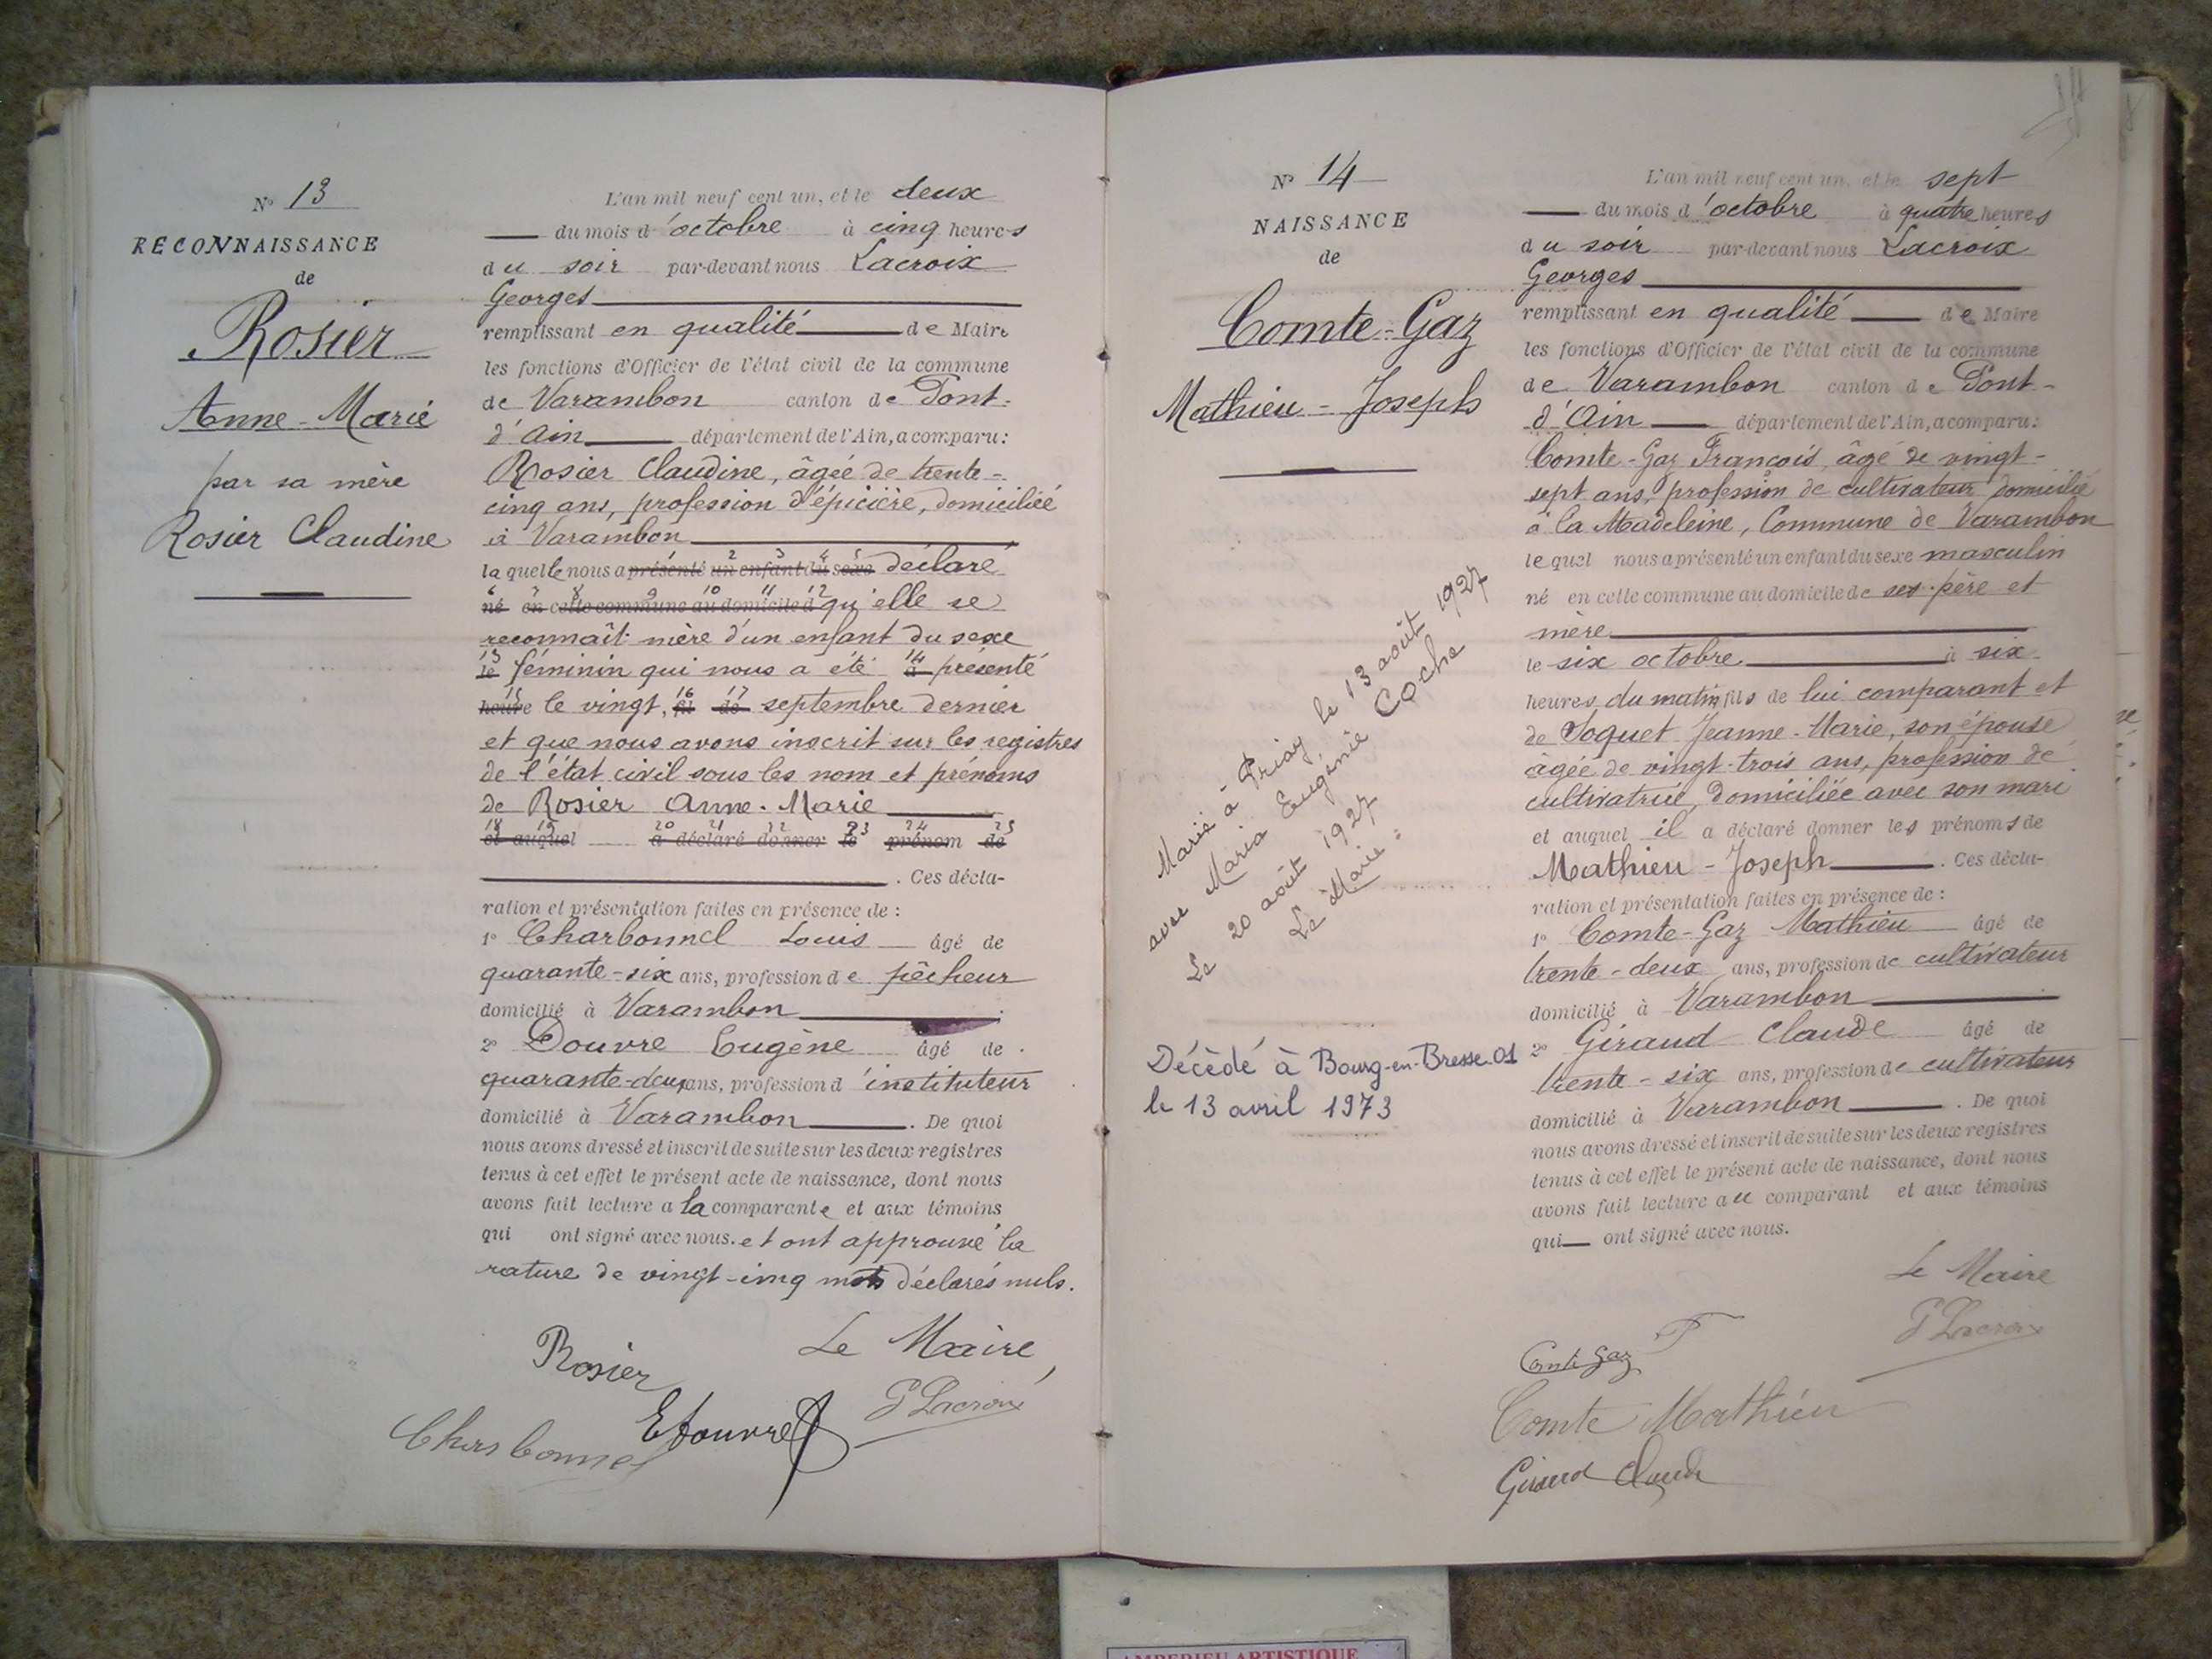 N° 13
RECONNAISSANCE
de
Rosier
Anne-Marie
par sa mère
Rosier Claudine
L'an mil neuf cent un, et le deux
du mois d'octobre à cinq heures
du soir par-devant nous Lacroix
Georges
remplissant en qualité de Maire
les fonctions d'Officier de l'état civil de la commune
de Varambon canton de Pont-
d'Ain département de l'Ain, a comparu :
Rosier Claudine, âgée de trente-
cinq ans, profession d'épicière, domiciliée
à Varambon
laquelle nous a présenté un enfant du sexe déclaré
2 3 4 5
6 7 8 9 10 11 12
né en cette commune au domicile d qu'elle se
reconnaît mère d'un enfant du sexe
13 14
le féminin qui nous a été à présenté
15 16 17
heure le vingt, fi de septembre dernier
et que nous avons inscrit sur les registres
de l'état civil sous les nom et prénoms
de Rosier Anne-Marie
18 19 20 21 22 23 24 25
et auquel a déclaré donner le prénom de
. Ces décla-
ration et présentation faites en présence de :
1° Charbonnel Louis âgé de
quarante-six ans, profession de pêcheur
domicilié à Varambon
2° Douvre Eugène âgé de
quarante-deux ans, profession d'instituteur
domicilié à Varambon . De quoi
nous avons dressé et inscrit de suite sur les deux registres
tenus à cet effet le présent acte de naissance, dont nous
avons fait lecture a la comparante et aux témoins
qui ont signé avec nous. et ont approuvé la
rature de vingt-cinq mots déclarés nuls.
Rosier Le Maire,
Charbonnel G Lacroix
N° 14
NAISSANCE
de
Comte-Gaz
Mathieu-Joseph
Marié à Priay le 13 août 1927
avec Maria Eugénie Coche
Le 20 août 1927
Le Maire :
Décédé à Bourg-en-Bresse 01
le 13 avril 1973
L'an mil neuf cent un, et le sept
du mois d'octobre à quatre heures
du soir par-devant nous Lacroix
Georges
remplissant en qualité de Maire
les fonctions d'Officier de l'état civil de la commune
de Varambon canton de Pont-
d'Ain département de l'Ain, a comparu :
Comte-Gaz François, âgé de vingt-
sept ans, profession de cultivateur domicilié
à la Madeleine, Commune de Varambon
lequel nous a présenté un enfant du sexe masculin
né en cette commune au domicile de ses père et
mère
le six octobre à six
heures du matin fils de lui comparant et
de Joguet Jeanne-Marie, son épouse
âgée de vingt-trois ans, profession de
cultivatrice, domiciliée avec son mari
et auquel il a déclaré donner les prénoms de
Mathieu-Joseph . Ces décla-
ration et présentation faites en présence de :
1° Comte-Gaz Mathieu âgé de
trente-deux ans, profession de cultivateur
domicilié à Varambon
2° Giraud Claude âgé de
trente-six ans, profession de cultivateur
domicilié à Varambon . De quoi
nous avons dressé et inscrit de suite sur les deux registres
tenus à cet effet le présent acte de naissance, dont nous
avons fait lecture au comparant et aux témoins
qui ont signé avec nous.
Le Maire
G Lacroix
Comte Gaz F
Comte Mathieu
Giraud Claude
AMBERIEU ARTISTIQUE